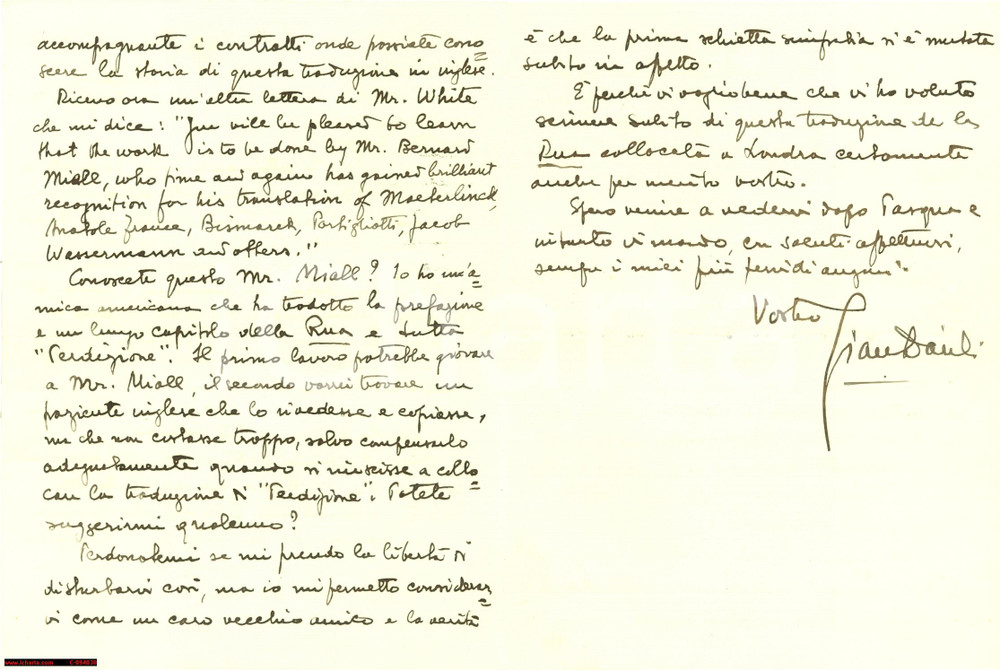 accompagnante i contratti onde possiate cono=
scere la storia di questa traduzione in inglese.
Ricevo ora un'altra lettera di Mr. White
che mi dice: "You will be pleased to learn
that the work is to be done by Mr. Bernard
Miall, who time and again has gained brilliant
recognition for his translation of Maeterlinck,
Anatole France, Bismarck, Portigliotti, Jacob
Wassermann and others."
Conoscete questo Mr. Miall? Io ho un'a=
mica americana che ha tradotto la prefazione
e un lungo capitolo della Rua e tutta
"Perdizione". Il primo lavoro potrebbe giovare
a Mr. Miall, il secondo vorrei trovare un
paziente inglese che lo rivedesse e copiasse,
ma che non costasse troppo, salvo compensarlo
adeguatamente quando si riuscisse a collo=
care la traduzione di "Perdizione": Potete
suggerirmi qualcuno?
Perdonatemi se mi prendo la libertà di
disturbarvi così, ma io mi permetto considerar=
vi come un caro vecchio amico e la verità
è che la prima schietta simpatia si è mutata
subito in affetto.
È perchè vi voglio bene che vi ho voluto
scrivere subito di questa traduzione de la
Rua collocata a Londra certamente
anche per merito vostro.
Spero venire a vedervi dopo Pasqua e
intanto vi mando, con saluti affettuosi,
sempre i miei più fervidi auguri.
Vostro
Gian Dàuli
www.icharta.com